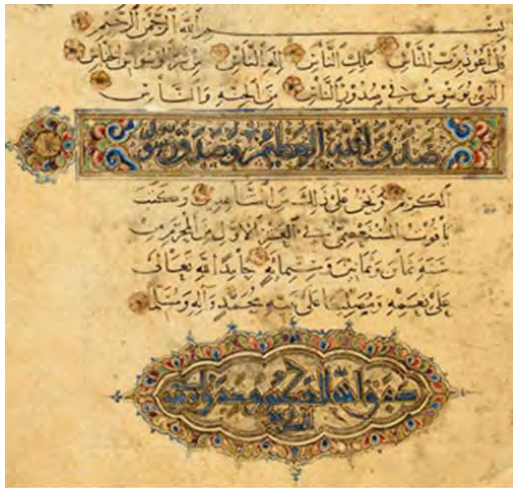 بسم الله الرحمن الرحيم
قل أعوذ برب الناس ملك الناس إله الناس من شر الوسواس الخناس
الذي يوسوس في صدور الناس من الجنة والناس
صدق الله العظيم وصدق رسوله
الكريم ونحن على ذلك من الشاهدين وكتب
ياقوت المستعصمي في العشر الأول من المحرم من
سنة ثمان وثمانين وستمائة حامدا لله تعالى
على نعمه ومصليا على نبيه محمد وآله ومسلما